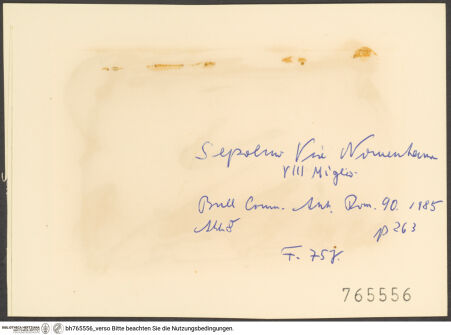 Sepolcro Via Nomentana
VIII Miglio
Bull Comm. Arch. Rom. 90. 1985
p 263
F. 75
765556
bh765556_verso Bitte beachten Sie die Nutzungsbedingungen.